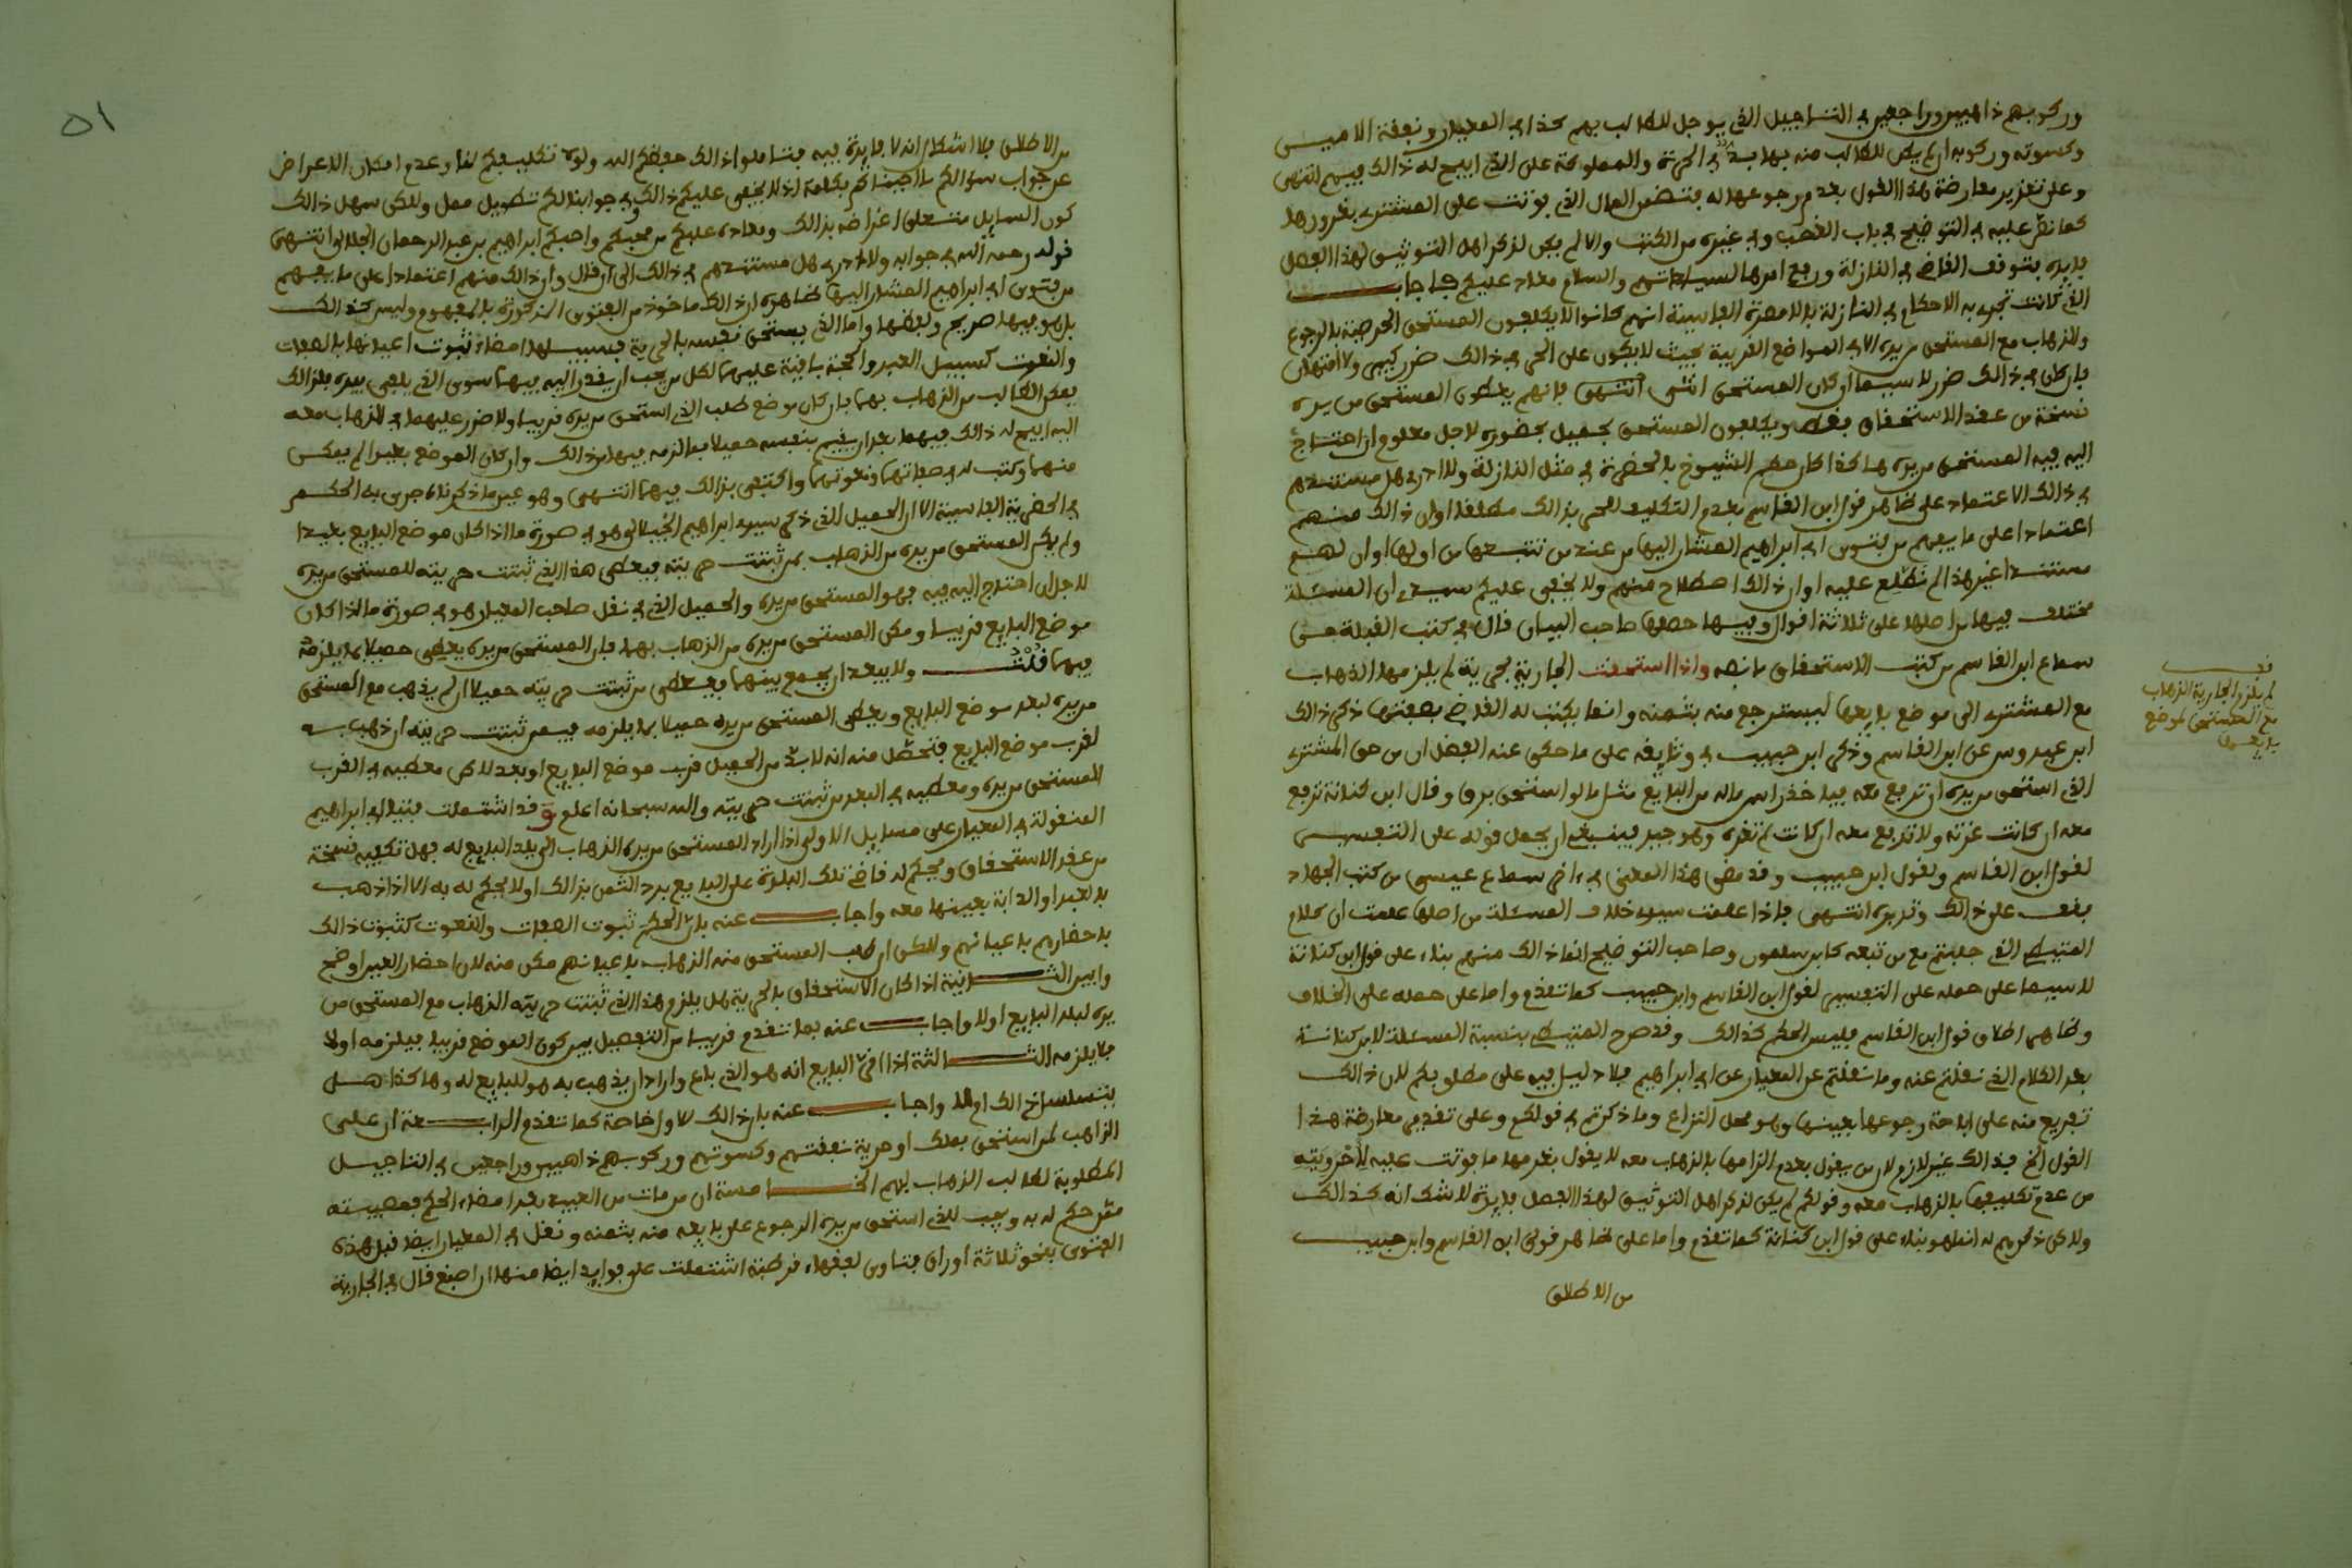 وركوبهم ذاهبين وراجعين في التاجيل الذي يوجل للطالب بهم كذا في المعيار ونفقة الامين
وكسوته وركوبه ان لم يكن للطالب منه بها بد في الحرة والمملوكة على الذي ابيح له ذالك فيهم انتهى
وعلى تقرير معارضة هذا القول بعدم رجوعها له فتضمن المال الذي فوتت على المشتري بغرورها
كما نص عليه في التوضيح في باب الغصب وفي غيره من الكتب والا لم يكن لذكر اهل التوثيق لهذا الفصل
فايدة بتوقف القاضي في النازلة ورفع امرها لسيادتهم والسلام معاد عليكم فاجاب
الذي كانت تجري به الاحكام في النازلة بالامصرة الفاسية انهم كانوا لا يكلفون المستحق الحرية بالرجوع
والذهاب مع المستحق من يده الا في المواضع القريبة بحيث لا يكون على الحر في ذالك ضرر كبير ولا امتهان
فان كان في ذالك ضرر لا سيما ان كان المستحق انثى انتهى فانهم يعطون المستحق من يده
نسخة من عقد الاستحقاق فقط ويكلفون المستحق بحميل بحضوره لاجل معلوم ان احتاج
اليه فيه المستحق من يده هاكذا كان حكم الشيوخ بالحضرة في مثل النازلة ولا ادري هل مستندهم
في ذالك الاعتماد على ظاهر قول ابن القاسم بعدم التكليف للحر بذالك مطلقا او ان ذالك منهم
اعتمادا على ما يفهم من فتوى ابي ابراهيم المشار اليها من عند من تتبعها من اولها او ان لهم
مستندا غير هذا لم نطلع عليه او ان ذالك اصطلاح منهم ولا يخفى عليكم سيدي ان المسئلة
مختلف فيها من اصلها على ثلاثة اقوال وفيها حصلها صاحب البيان قال في كتب القبلة من
سماع ابن القاسم من كتب الاستحقاق ما نصه واذا استحقت الجارية بحرية لم يلزمها الذهاب
مع المشتري الى موضع بايعها ليسترجع منه بثمنه وانما يكتب له القاضي بصفتها ذكر ذالك
ابن عبدوس عن ابن القاسم وذكر ابن حبيب في وثايقه على ما حكى عنه الفضل ان من حق المشتري
الذي استحق من يده ان ترفع معه فياخذ راس ماله من البايع مثل ما لو استحق برق وقال ابن كنانة ترفع
معه ان كانت غرته ولا ترفع معه ان كانت لم تغره وهو جيد فينبغي ان يجعل قوله على التفسير
لقول ابن القاسم ولقول ابن حبيب وقد مضى هذا المعنى في اخر سماع عيسى من كتب الجهاد
بقف على ذالك وتدبره انتهى فاذا علمت سيدي خلاف المسئلة من اصلها علمت ان كلام
المتيطي الذي جلبتم مع من تبعه كابن سلمون وصاحب التوضيح انما ذالك منهم بناء على قول ابن كنانة
لا سيما على حمله على التفسير لقول ابن القاسم وابن حبيب كما تقدم واما على حمله على الخلاف
وظاهر اطلاق قول ابن القاسم فليس الحكم كذالك وقد صرح المتيطي بنسبة المسئلة لابن كنانة
بعد الكلام الذي نقلتم عنه وما نقلتم عن المعيار عن ابي ابراهيم فلا دليل فيه على مطلوبكم لان ذالك
تفريع منه على اباحة رجوعها بعينها وهو محل النزاع وما ذكرتم في قولكم وعلى تقدير معارضة هذا
القول الخ فذالك غير لازم لان من يقول بعدم الزامها بالذهاب معه لا يقول بغرمها ما فوتت عليه لاحرويته
من عدم تكليفها بالذهاب معه وقولكم لم يكن لذكر اهل التوثيق لهذا الفصل فايدة لا شك انه كذالك
ولاكن ذكرهم له انما هو بناء على قول ابن كنانة كما تقدم واما على ظاهر قولي ابن القاسم وابن حبيب
من الاطلاق
قف
لم يلزم الجارية الذهاب
مع المستحق لموضع
بايعها
٥١
من الاطلاق فلا اشكال انه لا فايدة فيه فتاملوا ذالك حفظكم الله ولولا تكليفكم لنا وعدم امكان الاعراض
عن جواب سؤالكم ما اجبناكم بكلمة اذ لا يخفى عليكم ذالك وفي جوابنا لكم تطويل ممل ولاكن سهل ذالك
كون السايل متعلق اغراضه بذالك ومعاد عليكم من محبكم واحبكم ابراهيم بن عبد الرحمان الجلالي انتهى
قوله رحمه الله في جوابه ولا ادري هل مستندهم في ذالك الى ان قال وان ذالك منهم اعتمادا على ما يفهم
من فتوى ابي ابراهيم المشار اليها ظاهره ان ذالك ماخوذ من الفتوى المذكورة بالمفهوم وليس كذالك
بل هو فيها صريح ولفظها واما الذي يستحق نفسه بالحرية فسبيلها امضاء ثبوت اعيانها بالصفات
والنعوت كسبيل العبد والحجة باقية عليها لكل من يجب ان يقدر اليه فيها سوى الذي يلفى بيده بذالك
يمكن الطالب من الذهاب بهما فان كان موضع طلب الذي استحق من يده قريبا ولا ضرر عليهما في الذهاب معه
اليه ابيح له ذالك فيهما بعد ان يقيم بنفسه حميلا بما لزمه فيهما من ذالك وان كان الموضع بعيدا لم يمكن
منهما وكتب له بصفاتهما ونعوتهما واكتفى بذالك فيهما انتهى وهو عين ما ذكرناه جرى به الحكم
في الحضرة الفاسية الا ان الحميل الذي ذكر سيدي ابراهيم الجلالي هو في صورة ما اذا كان موضع البايع بعيدا
ولم يمكن المستحق من يده من الذهاب بمن ثبتت حريته فيعطى هذا الذي ثبتت حريته للمستحق من يده
للاجل ان احتاج اليه فيه فهو المستحق من يده والحميل الذي في نقل صاحب المعيار هو في صورة ما اذا كان
موضع البايع قريبا ومكن المستحق من يده من الذهاب بهما فان المستحق من يده يعطي حميلا بما يلزمه
فيهما قلت ولا يبعد ان يجمع بينهما فيعطي من ثبتت حريته حميلا ان لم يذهب مع المستحق
من يده لبعد موضع البايع ويعطي المستحق من يده حميلا بما يلزمه فيمن ثبتت حريته ان ذهب به
لقرب موضع البايع فتحصل منه انه لا بد من الحميل قرب موضع البايع او بعد لاكن معطيه في القرب
المستحق من يده ومعطيه في البعد من ثبتت حريته والله سبحانه اعلم وقد اشتملت فتيا ابي ابراهيم
المنقولة في المعيار على مسايل الاولى اذا اراد المستحق من يده الذهاب الى بلد البايع له فهل تكفيه نسخة
من عقد الاستحقاق ويحكم له قاضي تلك البلدة على البايع برد الثمن بذالك او لا يحكم له به الا اذا ذهب
بالعبد او الدابة بعينها معه واجاب عنه بان الحكم ثبوت الصفات والنعوت كثبوت ذالك
باحضارهم باعيانهم ولاكن ان طلب المستحق منه الذهاب باعيانهم مكن منه لان احضار العين اوضح
وابين الثانية اذا كان الاستحقاق بالحرية هل يلزم هذا الذي ثبتت حريته الذهاب مع المستحق من
يده لبلد البايع او لا واجاب عنه بما تقدم قريبا من التفصيل بين كون الموضع قريبا فيلزمه او لا
فلا يلزمه الثالثة اذا اقر البايع انه هو الذي باع واراد ان يذهب به هو للبايع له وهاكذا هل
يتسلسل ذالك ام لا واجاب عنه بان ذالك للاول خاصة كما تقدم الرابعة ان على
الذاهب بمن استحق بملك او حرية نفقتهم وكسوتهم وركوبهم ذاهبين وراجعين في التاجيل
المطلوبة لطالب الذهاب بهم الخامسة ان من مات من العبيد بعد امضاء الحكم فمصيبته
ممن حكم له به ويجب للذي استحق من يده الرجوع على بايعه منه بثمنه ونقل في المعيار ايضا قبل هذه
الفتوى بنحو ثلاثة اوراق فتاوى لفقهاء قرطبة اشتملت على فوايد ايضا منها ان اصبغ قال في الجارية